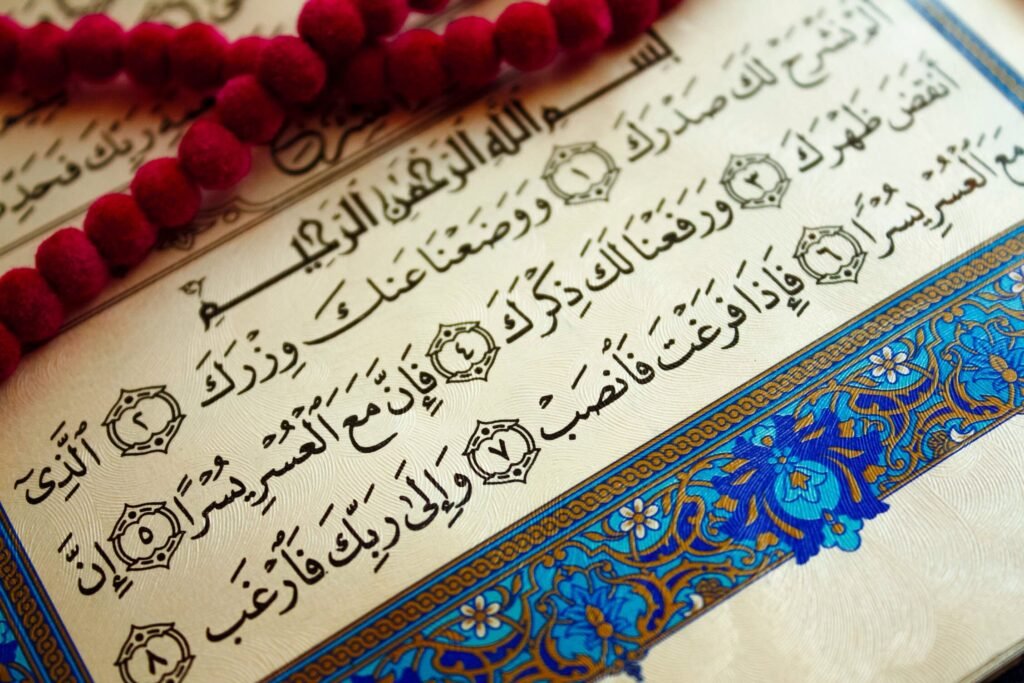 ـة رَبِّكَ فَحَدِّ
بِسْمِ اللَّهِ الرَّحْمَٰنِ الرَّحِيمِ
أَلَمْ نَشْرَحْ لَكَ صَدْرَكَ ١ وَوَضَعْنَا عَنكَ وِزْرَكَ ٢ ٱلَّذِىٓ
أَنقَضَ ظَهْرَكَ ٣ وَرَفَعْنَا لَكَ ذِكْرَكَ ٤ فَإِنَّ مَعَ ٱلْعُسْرِ يُسْرًا ٥ إِنَّ
مَعَ ٱلْعُسْرِ يُسْرًا ٦ فَإِذَا فَرَغْتَ فَٱنصَبْ ٧ وَإِلَىٰ رَبِّكَ فَٱرْغَب ٨